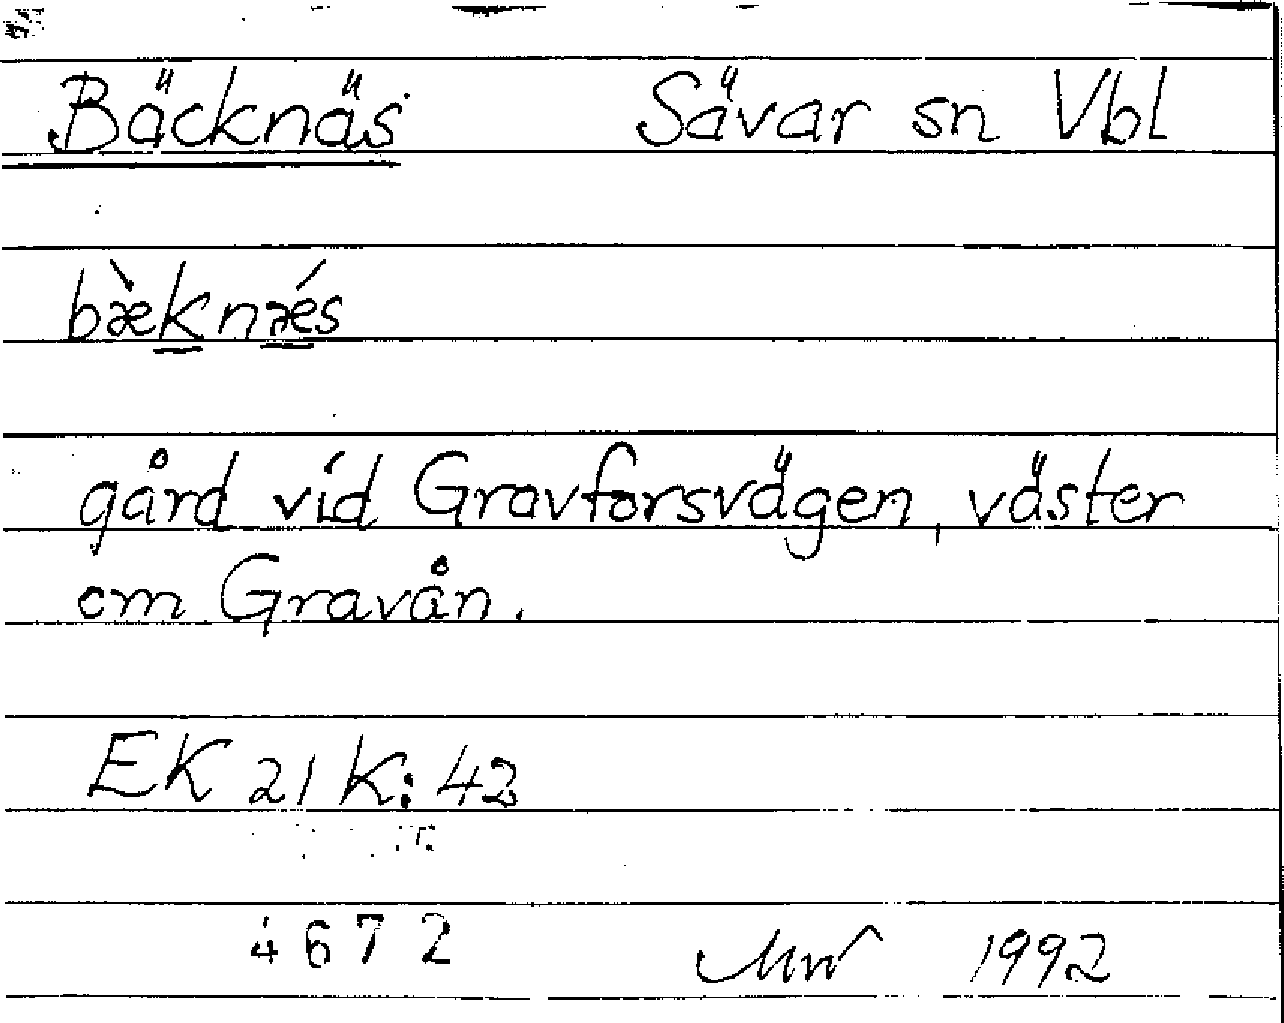 Bäcknäs Sävar sn Vbl
bæ̀knǽs
gård vid Gravforsvägen, väster
om Gravån.
EK 21 K: 42
4672 1992